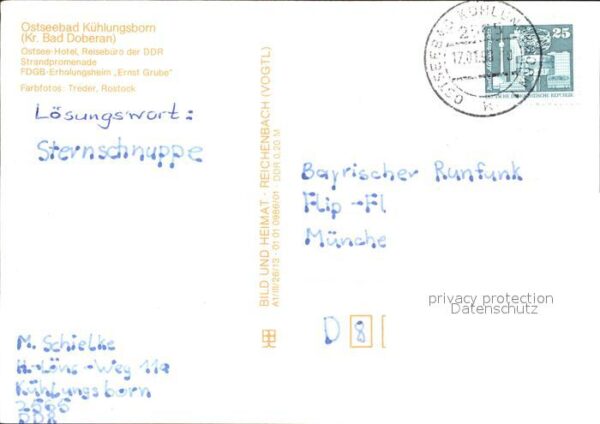 Ostseebad Kühlungsborn
(Kr. Bad Doberan)
Ostsee-Hotel, Reisebüro der DDR
Strandpromenade
FDGB-Erholungsheim „Ernst Grube"
Farbfotos: Treder, Rostock
Lösungswort:
Sternschnuppe
BILD UND HEIMAT · REICHENBACH (VOGTL)
A1/III/26/13 · 01 01 0986/01 · DDR 0,20 M
OSTSEEBAD KÜHLUNGSBORN
17.01.
25
Bayrischer Runfunk
Flip-Fl
Münche
privacy protection
Datenschutz
D 8
M. Schielke
H-Löns-Weg 11a
Kühlungsborn
2565
DDR